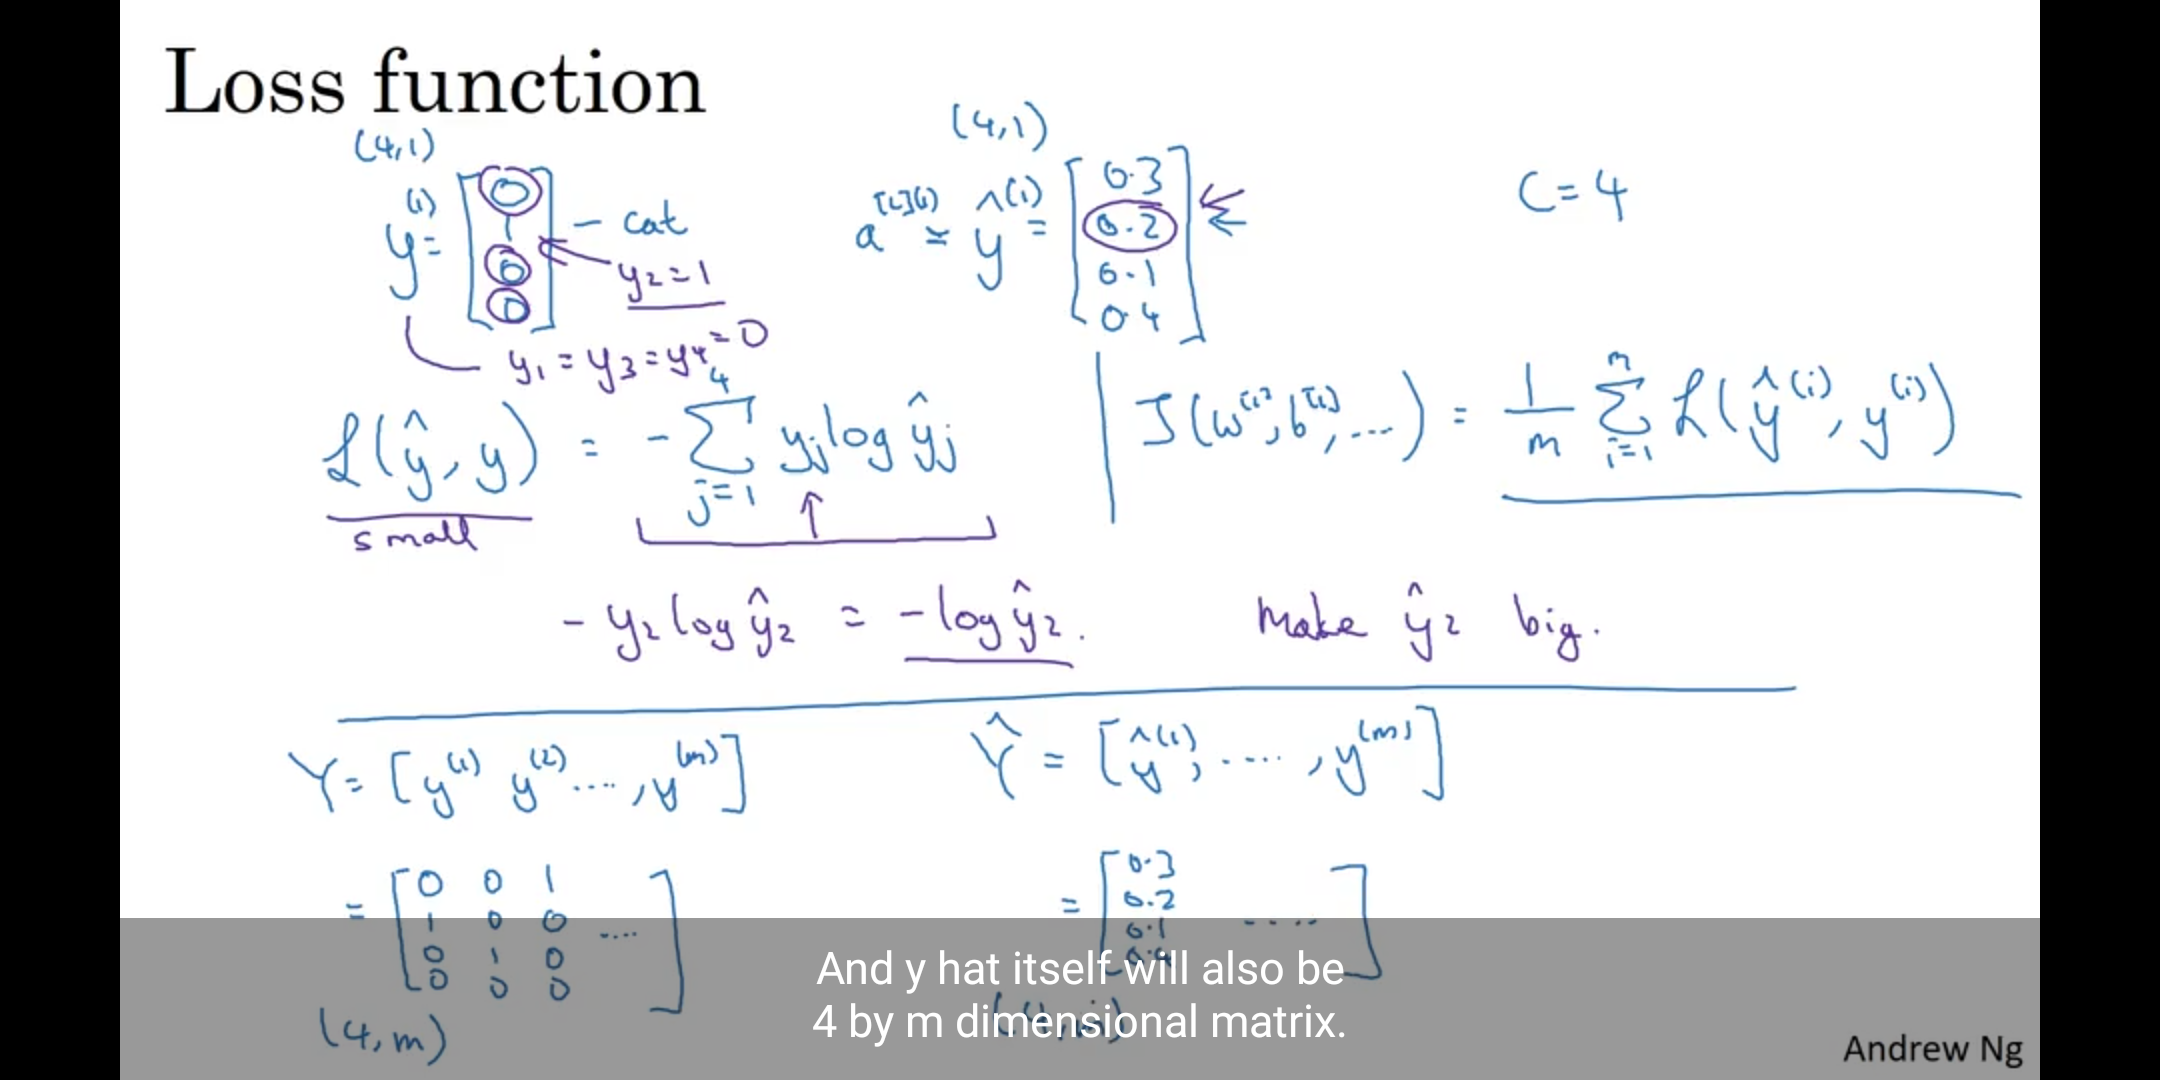 Loss function
(4,1)
(4,1)
y^(1) = [0 1 0 0] - cat
y₂ = 1
y₁ = y₃ = y₄ = 0
a^[L](1) = ŷ^(1) = [0.3 0.2 0.1 0.4]
C = 4
ℒ(ŷ, y) = - Σ_{j=1}^{4} yⱼ log ŷⱼ
small
J(w^[1], b^[1], ...) = 1/m Σ_{i=1}^{m} ℒ(ŷ^(i), y^(i))
- y₂ log ŷ₂ = - log ŷ₂.
Make ŷ₂ big.
Y = [y^(1) y^(2) ...., y^(m)]
Ŷ = [ŷ^(1), ....., y^(m)]
= [0 0 1
1 0 0 ....
0 1 0
0 0 0]
(4, m)
= [0.3
0.2
0.1 ....
0.4]
(4, m)
And y hat itself will also be
4 by m dimensional matrix.
Andrew Ng